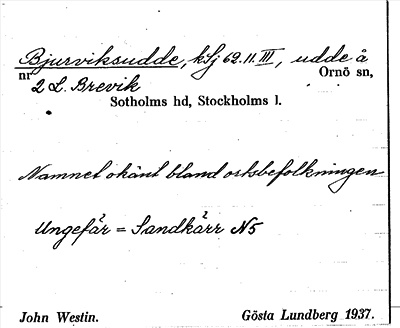 Bjurviksudde, kSj 62.11.III, udde å
nr 2 L. Brevik Ornö sn,
Sotholms hd, Stockholms l.
Namnet okänt bland ortsbefolkningen
Ungefär = Sandkärr N5
John Westin. Gösta Lundberg 1937.